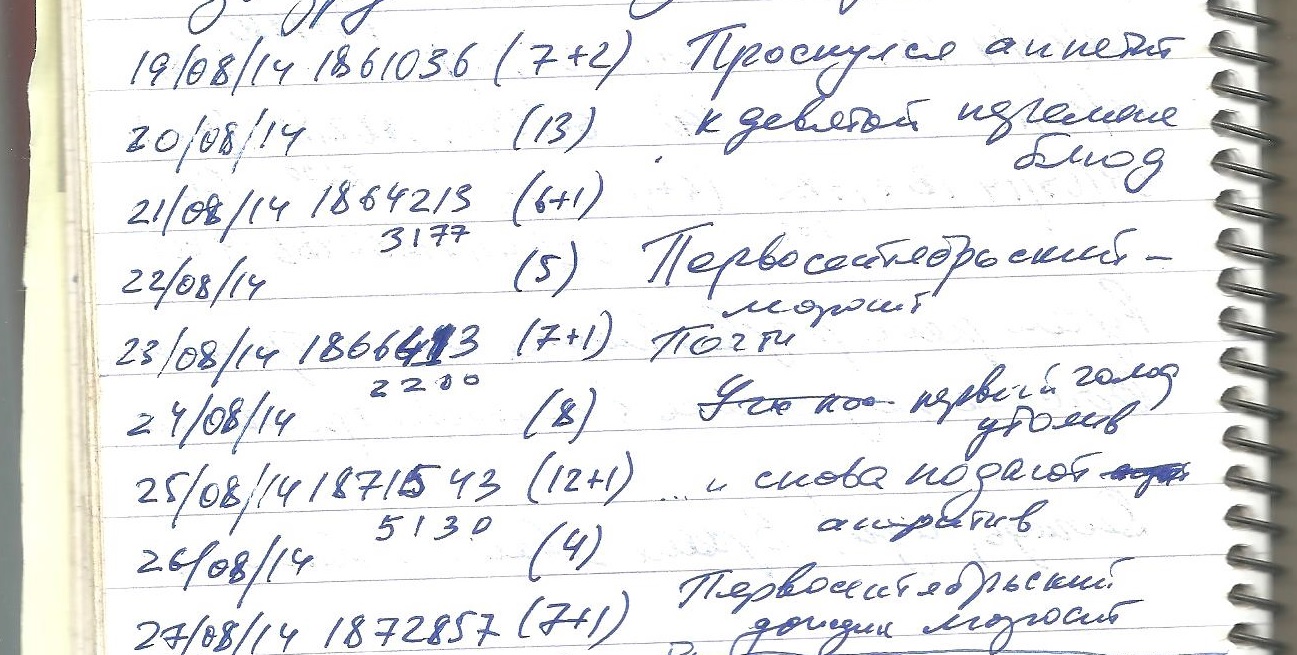 19/08/14 1861036 (7+2) Проснулся аппетит
20/08/14 (13) к девятой перемене
блюд
21/08/14 1864213 (6+1)
3177
22/08/14 (5) Первосентябрьский –
моросит
23/08/14 1866413 (7+1) Почти
2200
24/08/14 (8) первый голод
утолив
25/08/14 1871543 (12+1) ... и снова подают
5130 аперитив
26/08/14 (4)
Первосентябрьский
27/08/14 1872857 (7+1) дождик моросит